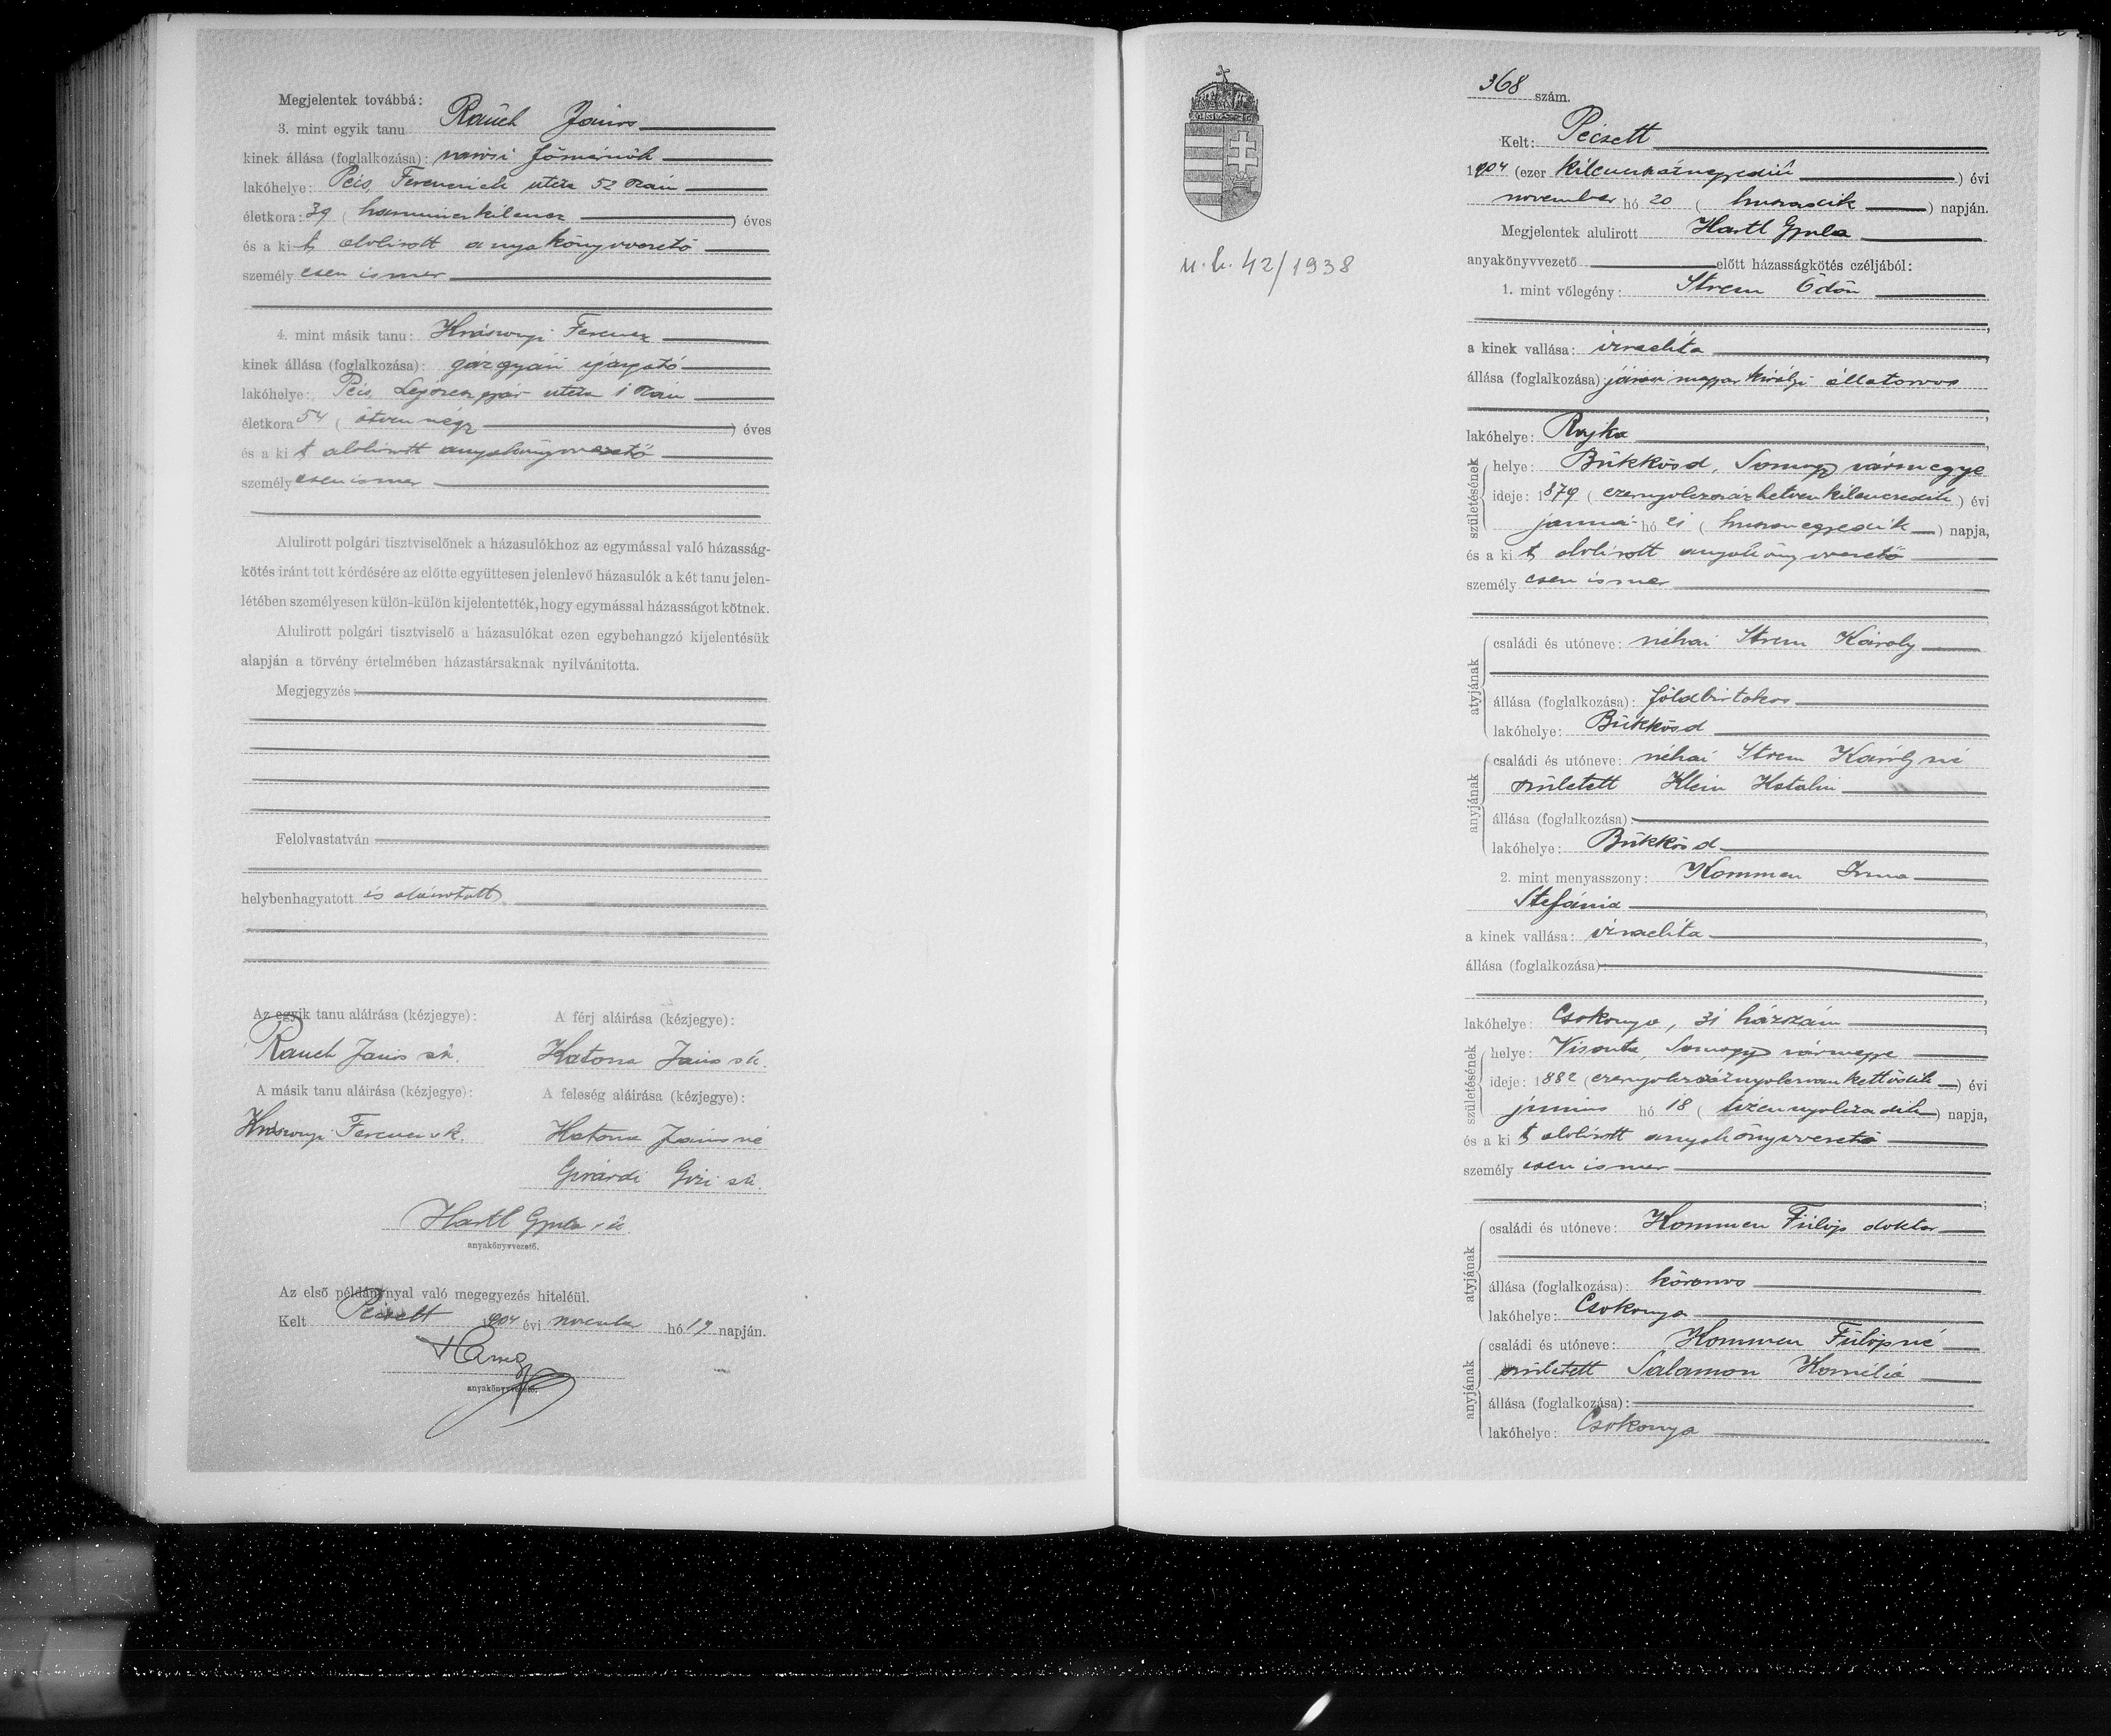 Megjelentek továbbá:
3. mint egyik tanu Rauch János
kinek állása (foglalkozása): városi főmérnök
lakóhelye: Pécs, Ferencziek utcza 52 szám
életkora: 39 (harminczkilencz) éves
és a kit alulírott anyakönyvvezető
személyesen ismer
4. mint másik tanu: Ferencz
kinek állása (foglalkozása): gázgyári igazgató
lakóhelye: Pécs, utcza 1 szám
életkora 54 (ötvennégy) éves
és a kit alulírott anyakönyvvezető
személyesen ismer
Alulirott polgári tisztviselőnek a házasulókhoz az egymással való házasság-
kötés iránt tett kérdésére az előtte együttesen jelenlevő házasulók a két tanu jelen-
létében személyesen külön-külön kijelentették, hogy egymással házasságot kötnek.
Alulirott polgári tisztviselő a házasulókat ezen egybehangzó kijelentésük
alapján a törvény értelmében házastársaknak nyilvánitotta.
Megjegyzés:
Felolvastatván
helybenhagyatott és aláíratott
Az egyik tanu aláirása (kézjegye):
Rauch János sk.
A férj aláirása (kézjegye):
Katona János sk.
A másik tanu aláirása (kézjegye):
Ferencz sk.
A feleség aláirása (kézjegye):
Katona Jánosné
Girárdi Gizi sk.
Hartl Gyula sk.
anyakönyvvezető.
Az első példánynyal való megegyezés hiteléül.
Kelt Pécsett 1904 évi november hó 19 napján.
anyakönyvvezető.
368 szám.
Kelt: Pécsett
1904 (ezer kilenczszáznegyedik) évi
november hó 20 (huszadik) napján.
Megjelentek alulirott Hartl Gyula
anyakönyvvezető előtt házasságkötés czéljából:
u. h. 42/1938
1. mint vőlegény: Strem Ödön
a kinek vallása: izraelita
állása (foglalkozása): járási magyar királyi állatorvos
lakóhelye: Rajka
születésének
helye: Bükkösd, Somogy vármegye
ideje: 1879 (ezernyolczszázhetvenkilenczedik) évi
január hó 21 (huszonegyedik) napja,
és a kit alulírott anyakönyvvezető
személyesen ismer
atyjának
családi és utóneve: néhai Strem Károly
állása (foglalkozása): földbirtokos
lakóhelye: Bükkösd
anyjának
családi és utóneve: néhai Strem Károlyné
született Klein Katalin
állása (foglalkozása):
lakóhelye: Bükkösd
2. mint menyasszony: Kommen Irma
Stefánia
a kinek vallása: izraelita
állása (foglalkozása):
lakóhelye: Csokonya, 31 házszám
születésének
helye: Visonta, Somogy vármegye
ideje: 1882 (ezernyolczszáznyolczvankettődik) évi
június hó 18 (tizennyolczadik) napja,
és a kit alulírott anyakönyvvezető
személyesen ismer
atyjának
családi és utóneve: Kommen Fülöp doktor
állása (foglalkozása): körorvos
lakóhelye: Csokonya
anyjának
családi és utóneve: Kommen Fülöpné
született Salamon Kornélia
állása (foglalkozása):
lakóhelye: Csokonya